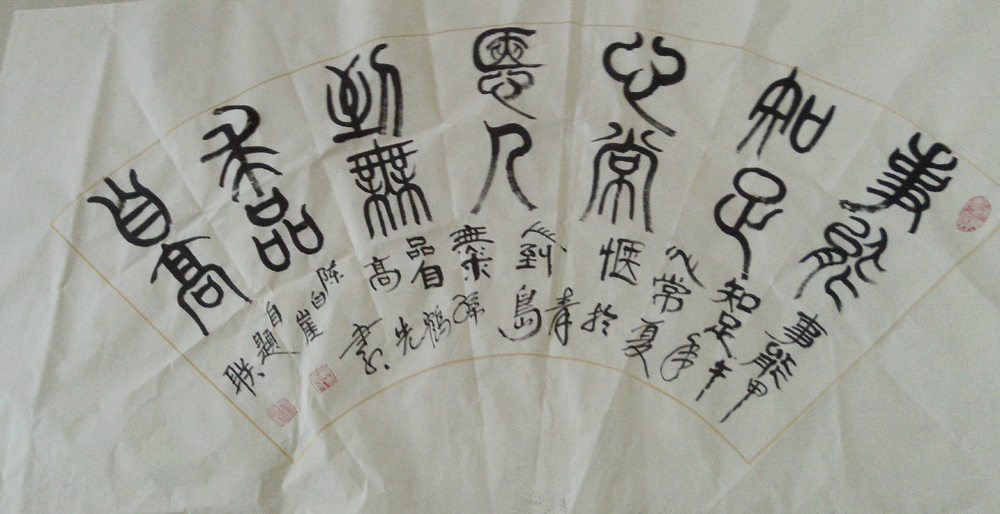 事能
知足
心常
惬人
到無
求品
自高
事能
知足
心常
惬
人到
無求
品自
高
甲
午
年
夏
於
青
島
孫
鶴
先
書
陈白崖
自題
联